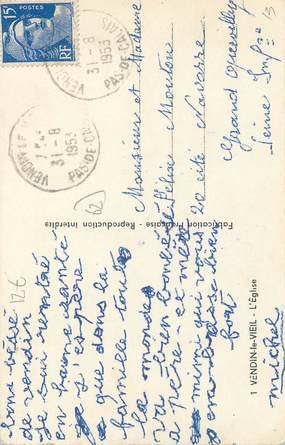 15F
POSTES
RF
VENDIN-LE-VIEIL
31-8
1953
PAS-DE-CALAIS
VENDIN-LE-VIEIL
31-8
1953
PAS-DE-CALAIS
62
126
13
Monsieur et Madame
Félicien Moutone
20 cité Navarre
Grand Quevilly
Seine Infre
bons bété
de vendin
je sui rentré
en bonne santé
j'espère
que dans la
famille tous
le monde
va bien
a père et mère
mimi qui vous
embrasse bien
fort
michel
Fabrication Française - Reproduction interdite
1 VENDIN-le-VIEIL - L'Église